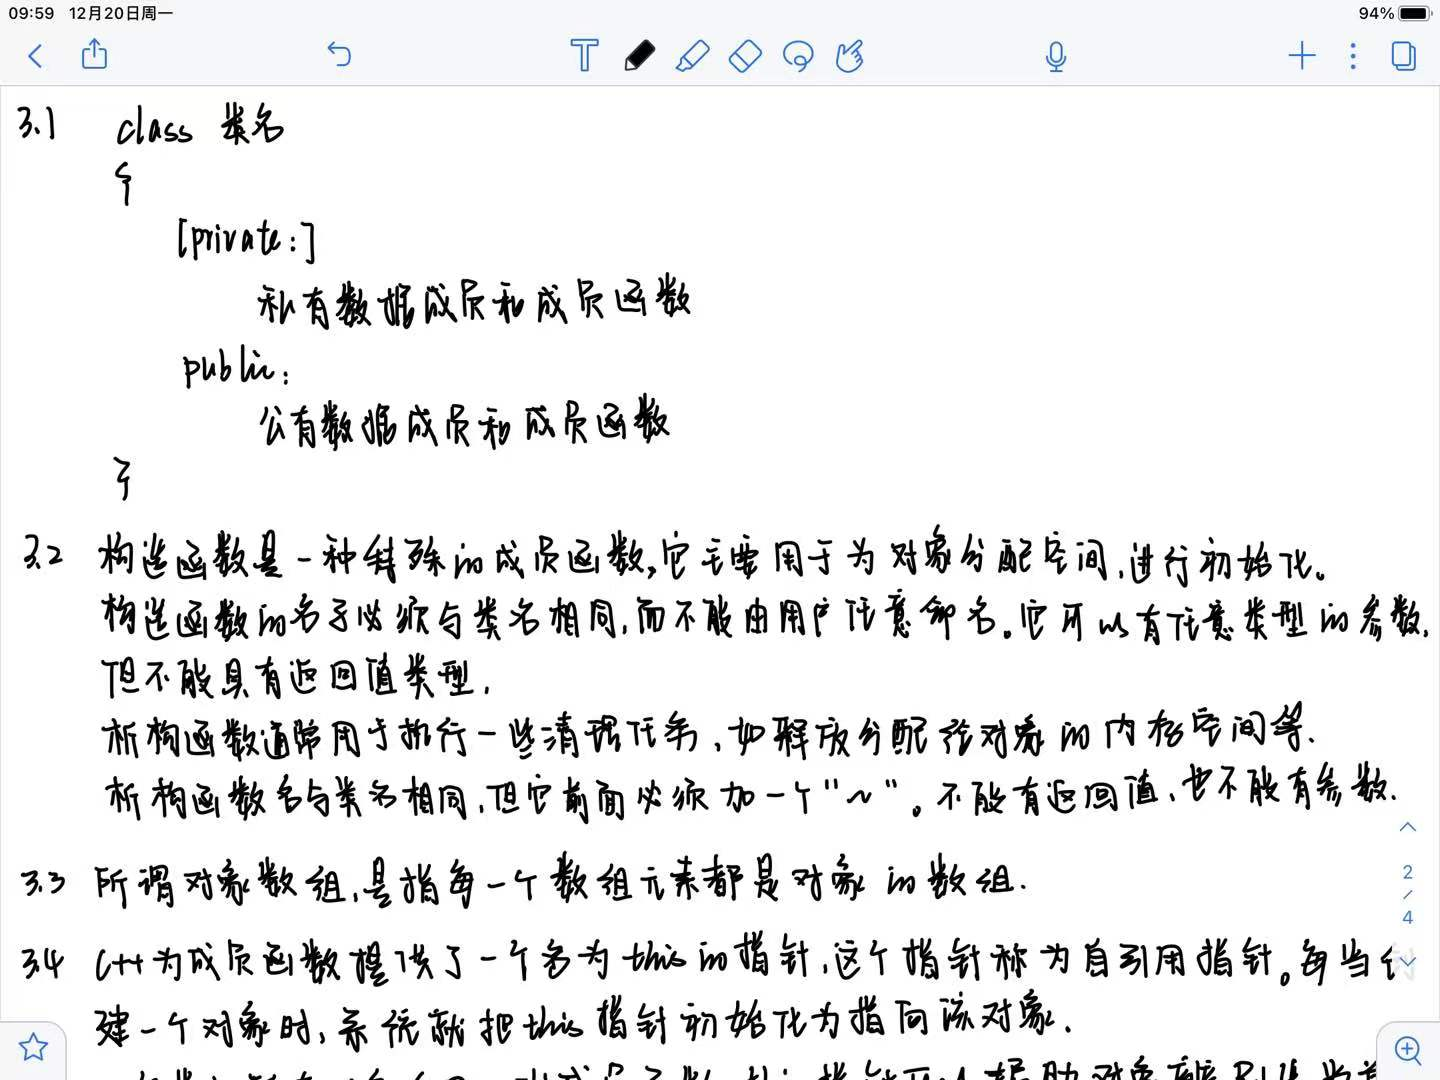 09:59 12月20日周一
94%
3.1 class 类名
{
[private:]
私有数据成员和成员函数
public:
公有数据成员和成员函数
}
3.2 构造函数是一种特殊的成员函数,它主要用于为对象分配空间,进行初始化。
构造函数的名字必须与类名相同,而不能由用户任意命名。它可以有任意类型的参数,
但不能具有返回值类型,
析构函数通常用于执行一些清理任务,如释放分配给对象的内存空间等.
析构函数名与类名相同,但它前面必须加一个"~"。不能有返回值,也不能有参数.
3.3 所谓对象数组,是指每一个数组元素都是对象的数组.
3.4 C++为成员函数提供了一个名为this的指针,这个指针称为自引用指针。每当创
建一个对象时,系统就把this指针初始化为指向该对象.
2
/
4